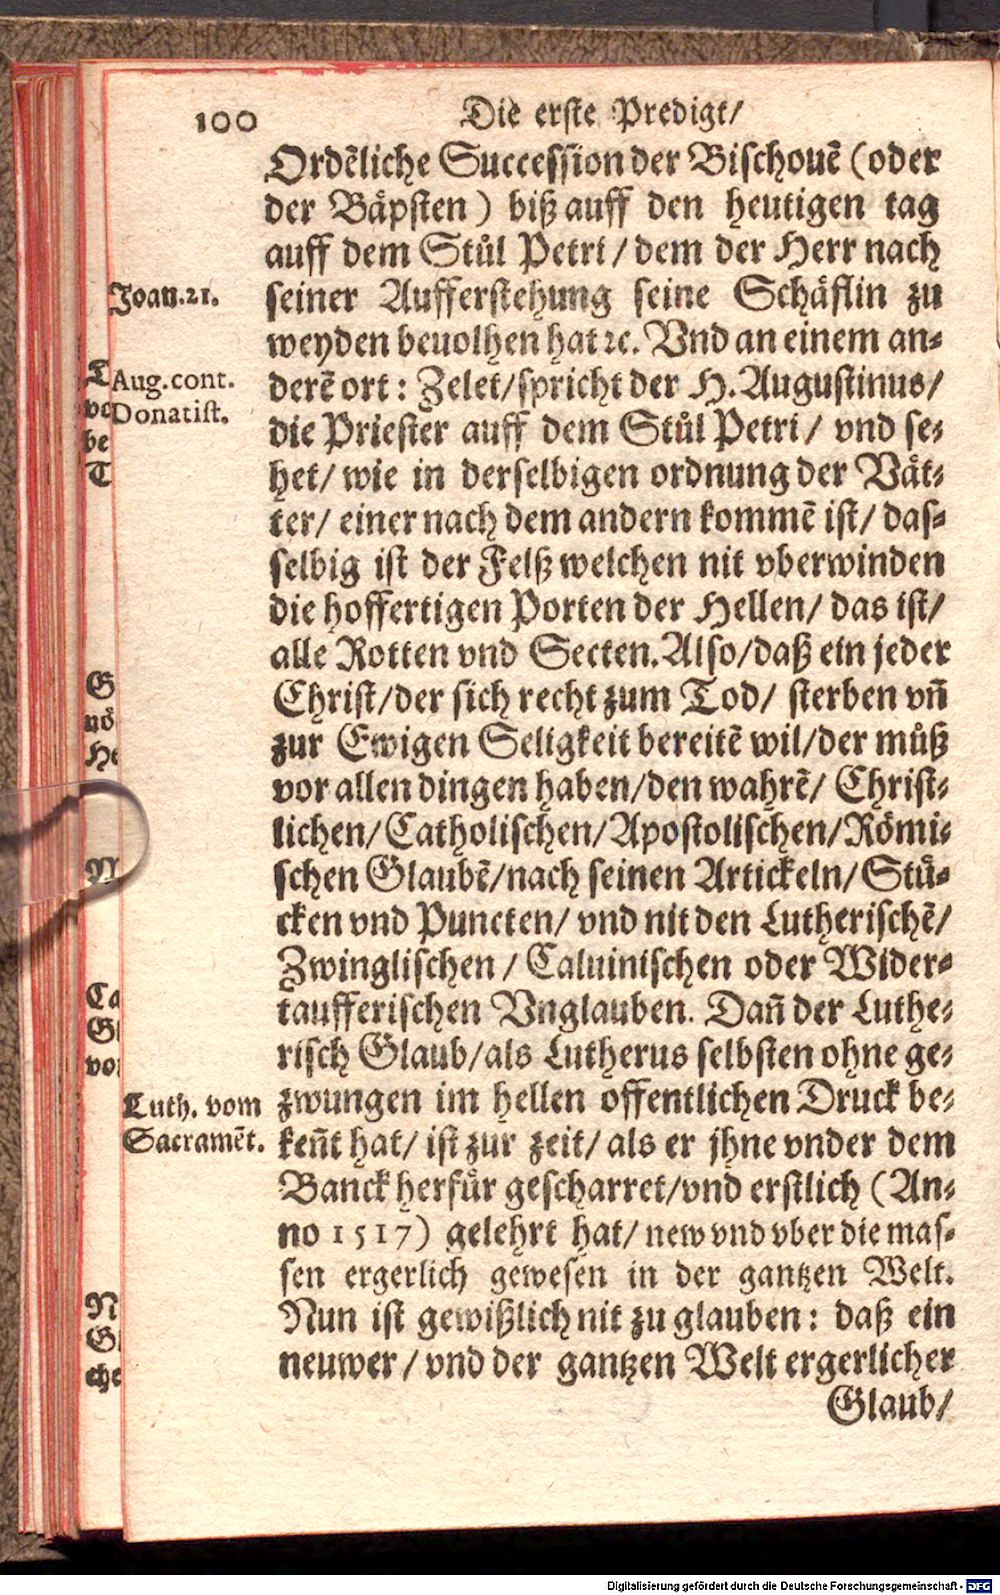 100 Die erste Predigt/
Ordẽliche Succession der Bischouẽ (oder
der Bäpsten) biß auff den heutigen tag
auff dem Stůl Petri/ dem der Herr nach
Joan.21.
seiner Aufferstehung seine Schäflin zu
weyden beuolhen hat ꝛc. Vnd an einem an-
Aug.cont.
Donatist.
derẽ ort: Zelet/ spricht der H. Augustinus/
die Priester auff dem Stůl Petri/ vnd se-
het/ wie in derselbigen ordnung der Vät-
ter/ einer nach dem andern kommẽ ist/ das-
selbig ist der Felß welchen nit vberwinden
die hoffertigen Porten der Hellen/ das ist/
alle Rotten vnd Secten. Also/ daß ein jeder
Christ/ der sich recht zum Tod/ sterben vñ
zur Ewigen Seligkeit bereitẽ wil/ der můß
vor allen dingen haben/ den wahrẽ/ Christ-
lichen/ Catholischen/ Apostolischen/ Römi-
schen Glaubẽ/ nach seinen Artickeln/ Stü-
cken vnd Puncten/ vnd nit den Lutherischẽ/
Zwinglischen/ Caluinischen oder Wider-
taufferischen Vnglauben. Dañ der Luthe-
risch Glaub/ als Lutherus selbsten ohne ge-
Luth. vom
Sacramẽt.
zwungen im hellen offentlichen Druck be-
keñt hat/ ist zur zeit/ als er jhne vnder dem
Banck herfür gescharret/ vnd erstlich (An-
no 1517) gelehrt hat/ new vnd vber die mas-
sen ergerlich gewesen in der gantzen Welt.
Nun ist gewißlich nit zu glauben: daß ein
neuwer/ vnd der gantzen Welt ergerlicher
Glaub/
Digitalisierung gefördert durch die Deutsche Forschungsgemeinschaft - DFG